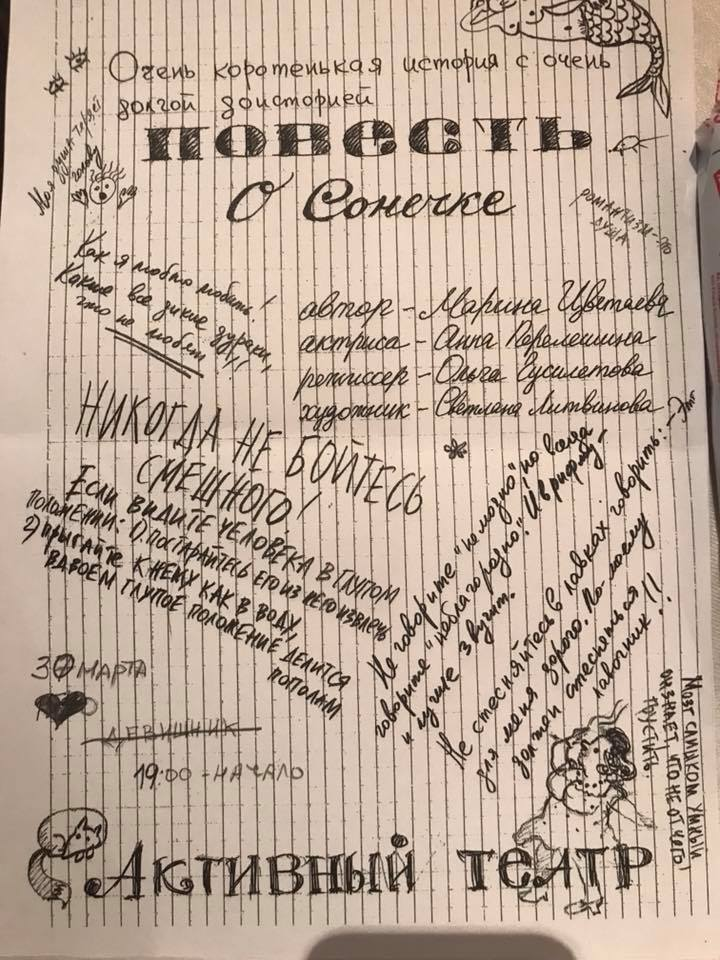 Очень коротенькая история с очень
долгой доисторией
Повесть
О Сонечке
Моя душа теряет
голову
романтизм - это
душа
Как я люблю любить!
Какие все дикие дураки,
что не любят!!!
автор - Марина Цветаева
актриса - Анна Перелешина
режиссер - Ольга Сусилетова
художник - Светлана Литвинова
НИКОГДА НЕ БОЙТЕСЬ
СМЕШНОГО!
Если видите человека в глупом
положении: 1) постарайтесь его из него извлечь
2) прыгайте к нему как в воду,
вдвоем глупое положение делится
пополам
Не говорите "не модно" но всегда
говорите "неблагородно". И в рифму -
и лучше звучит.
Не стесняйтесь в лавках говорить: - Это
для меня дорого. По-моему
должен стесняться
лавочник!!
Мозг слишком умный
он знает, что не от чего
грустить.
30 МАРТА
ДЕВИШНИК
19:00 - НАЧАЛО
Активный театр